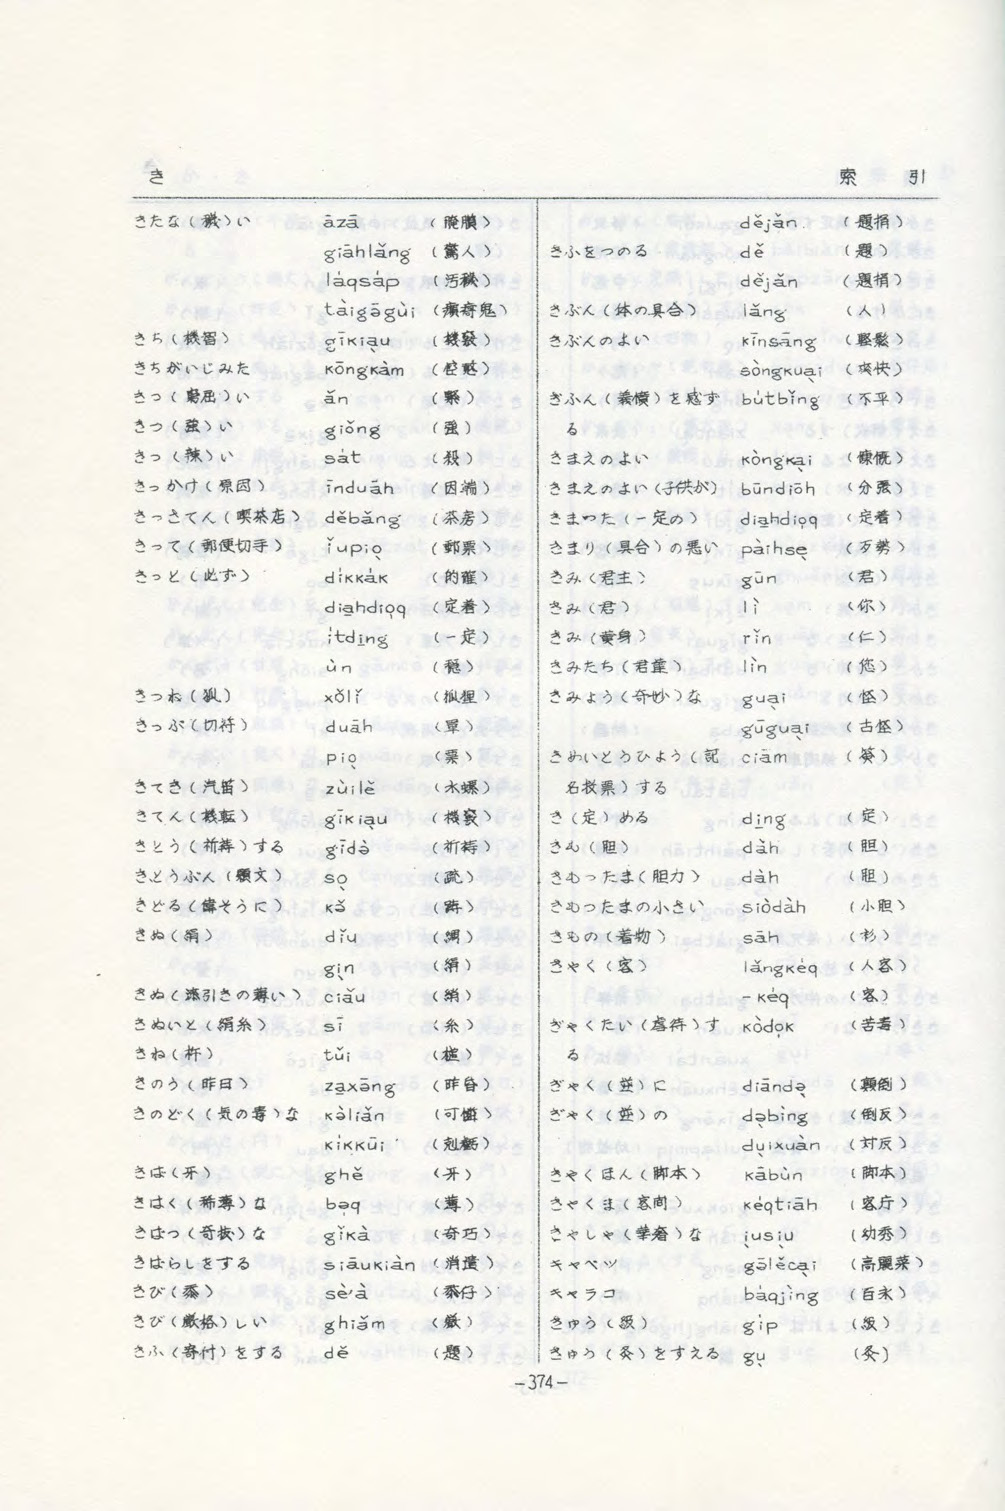 き
索 引
きたな(穢)い āzā (腌臢)
giāhlǎng (驚人)
láqsáp (汚穢)
tàigəgùi (癩𰣻鬼)
きち(機智) gīkiạu (機竅)
きちがいじみた kōngkàm
きつ(窮屈)い ǎn
きつ(強)い giǒng (強)
きつ(辣)い sát (殺)
きっかけ(原因) īnduāh (因端)
きっさてん(喫茶店) děbǎng (茶房)
きって(郵便切手) ǐupiọ (郵票)
きっと(必ず) díkkák (的確)
diạhdiọq (定着)
ítdịng (一定)
ùn (穏)
きつね(狐) xǒlǐ (狐狸)
きっぷ(切符) duāh (單)
piọ (票)
きてき(汽笛) zùilě (水螺)
きてん(機転) gīkiạu (機竅)
きとう(祈祷)する gīdə̀ (祈祷)
きとうぶん(願文) sọ (疏)
きどる(偉そうに) kə̌
きぬ(絹) dǐu (綢)
gịn (絹)
きぬ(漉引きの薄い) ciāu (綃)
きぬいと(絹糸) sī (糸)
きね(杵) tǔi (槌)
きのう(昨日) zạxəng (昨昏)
きのどく(気の毒)な kə̀liǎn (可憐)
kíkkūi (剋虧)
きば(牙) ghě (牙)
きはく(稀薄)な bəq (薄)
きばつ(奇抜)な gǐkà (奇巧)
きばらしをする siāukiàn (消遣)
きび(黍) sè'à (黍仔)
きび(厳格)しい ghiǎm (厳)
きふ(寄付)をする dě (題)
děјǎn (題捐)
きふをつのる dě (題)
děјǎn (題捐)
きぶん(体の具合) lǎng (人)
きぶんのよい kīnsāng (軽鬆)
sòngkuại (爽快)
ぎふん(義憤)を感ず bútbǐng (不平)
る
きまえのよい kòngkại (慷慨)
きまえのよい(子供が) būndiōh (分張)
きまった(一定の) diạhdiọq (定着)
きまり(具合)の悪い pàihsẹ (歹勢)
きみ(君主) gūn (君)
きみ(君) lì (你)
きみ(黄身) rǐn (仁)
きみたち(君輩) lìn (恁)
きみょう(奇妙)な guại (怪)
gūguại (古怪)
きめいとうひよう(記 ciām (簽)
名投票)する
き(定)める dịng (定)
きも(胆) dàh (胆)
きもったま(胆力) dàh (胆)
きもったまの小さい siòdàh (小胆)
きもの(着物) sāh (衫)
きゃく(客) lǎngkéq (人客)
-kéq (客)
ぎゃくたい(虐待)す kòdọk (苦毒)
る
ぎゃく(逆)に diāndə̣ (顛倒)
ぎゃく(逆)の də̣bìng (倒反)
dụixuàn (対反)
きゃくほん(脚本) kābùn (脚本)
きゃくま(客間) kéqtiāh (客庁)
きゃしゃ(華奢)な ịusịu (幼秀)
キャベツ gəlěcại (高麗菜)
キャラコ báqјìng (百永)
きゅう(級) gíp (级)
きゅう(灸)をすえる gụ (灸)
-374-